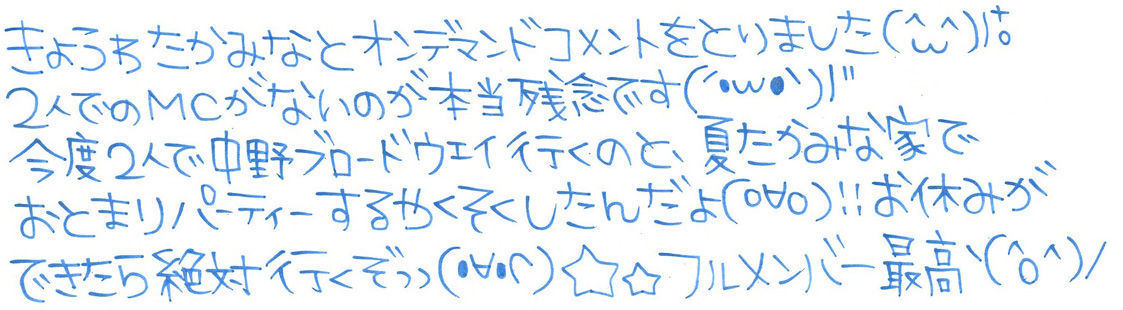 きょうわたかみなとオンデマンドコメントをとりました(^ω^)/°
2人でのMCがないのが本当残念です(´•ω•`)/"
今度2人で中野ブロードウェイ行くのと、夏たかみな家で
おとまりパーティーするやくそくしたんだよ(o∀o)!!お休みが
できたら絶対行くぞっっ(•∀•)☆☆フルメンバー最高＼(^o^)/